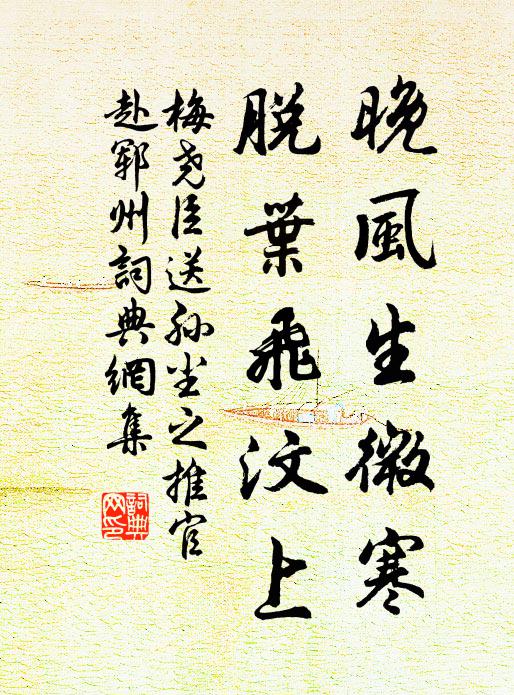 晚風生微寒
脱葉飛汶上
梅堯臣送孫坐之推官
赴鄆州詞典網集
詞典網印